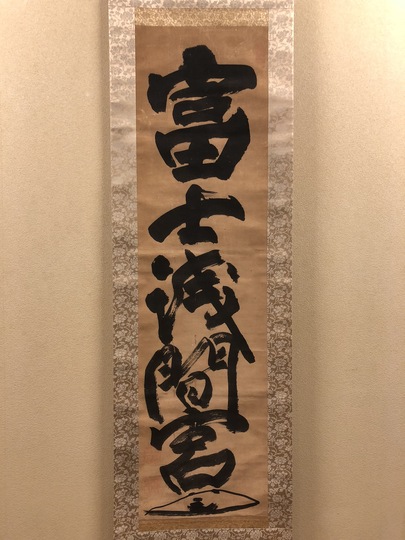 富士浅間宮